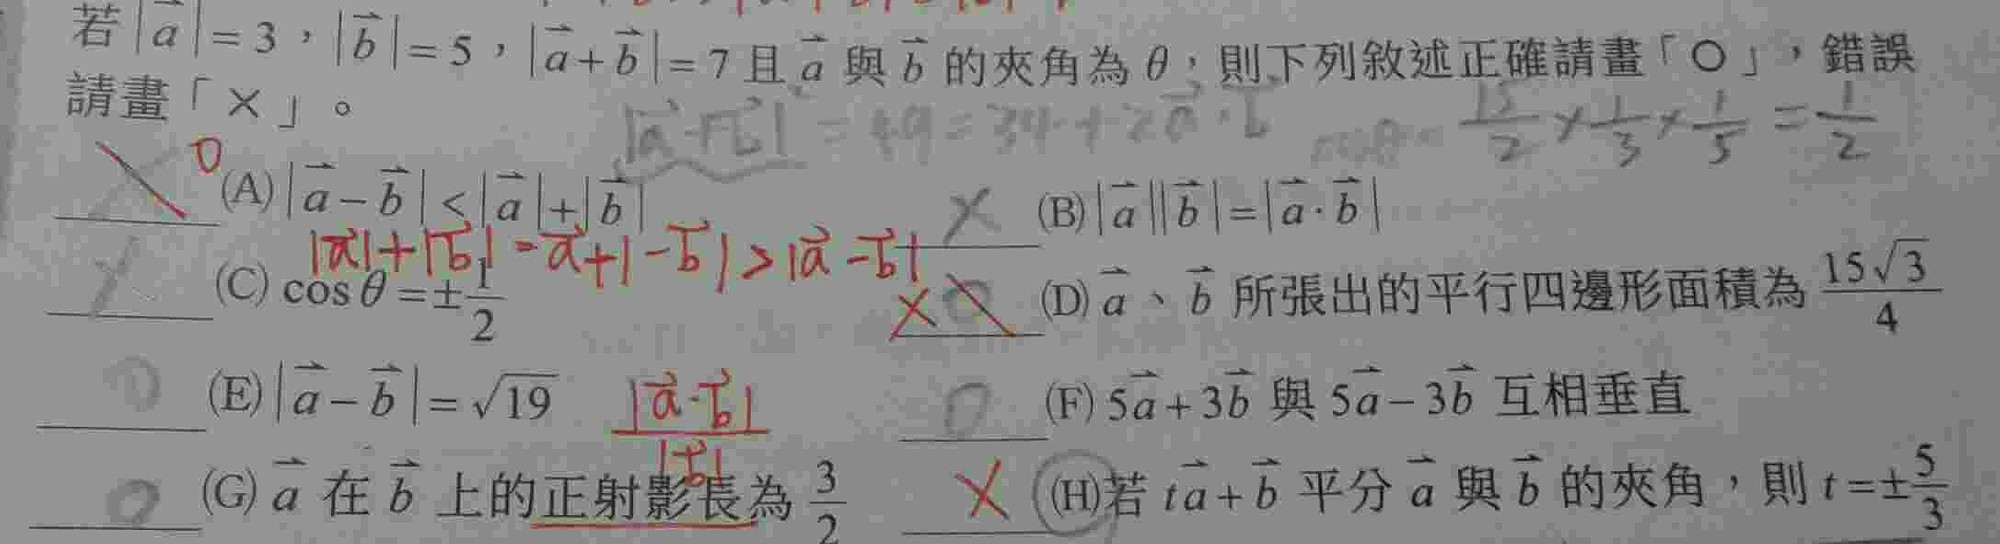 若 |a⃗|=3，|b⃗|=5，|a⃗+b⃗|=7 且 a⃗ 與 b⃗ 的夾角為 θ，則下列敘述正確請畫「○」，錯誤
請畫「×」。
|a⃗+b⃗| = 49 = 34 + 2a⃗·b⃗
15/2 × 1/3 × 1/5 = 1/2
O (A) |a⃗-b⃗|<|a⃗|+|b⃗|
× (B) |a⃗||b⃗|=|a⃗·b⃗|
|a⃗|+|b⃗| = a⃗+|-b⃗| > |a⃗-b⃗|
× (C) cos θ=±1/2
× (D) a⃗、b⃗ 所張出的平行四邊形面積為 15√3/4
O (E) |a⃗-b⃗|=√19
|a⃗·b⃗|/|b⃗|
O (F) 5a⃗+3b⃗ 與 5a⃗-3b⃗ 互相垂直
O (G) a⃗ 在 b⃗ 上的正射影長為 3/2
× (H) 若 ta⃗+b⃗ 平分 a⃗ 與 b⃗ 的夾角，則 t=±5/3